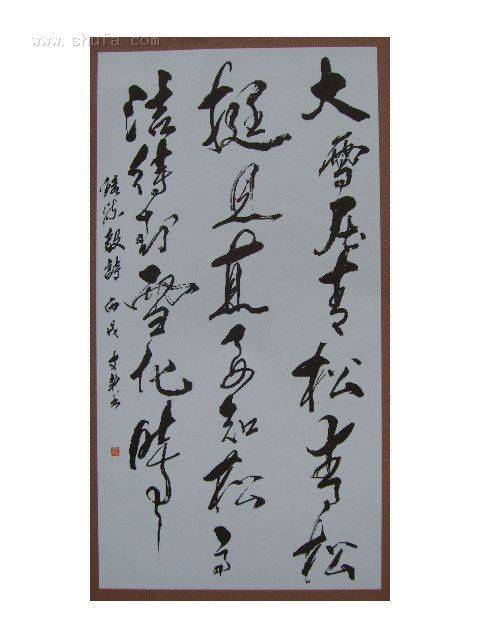 www.shufa.com
大雪压青松青松
挺且直要知松高
洁待到雪化時
錄陈毅詩 丙戌 文书